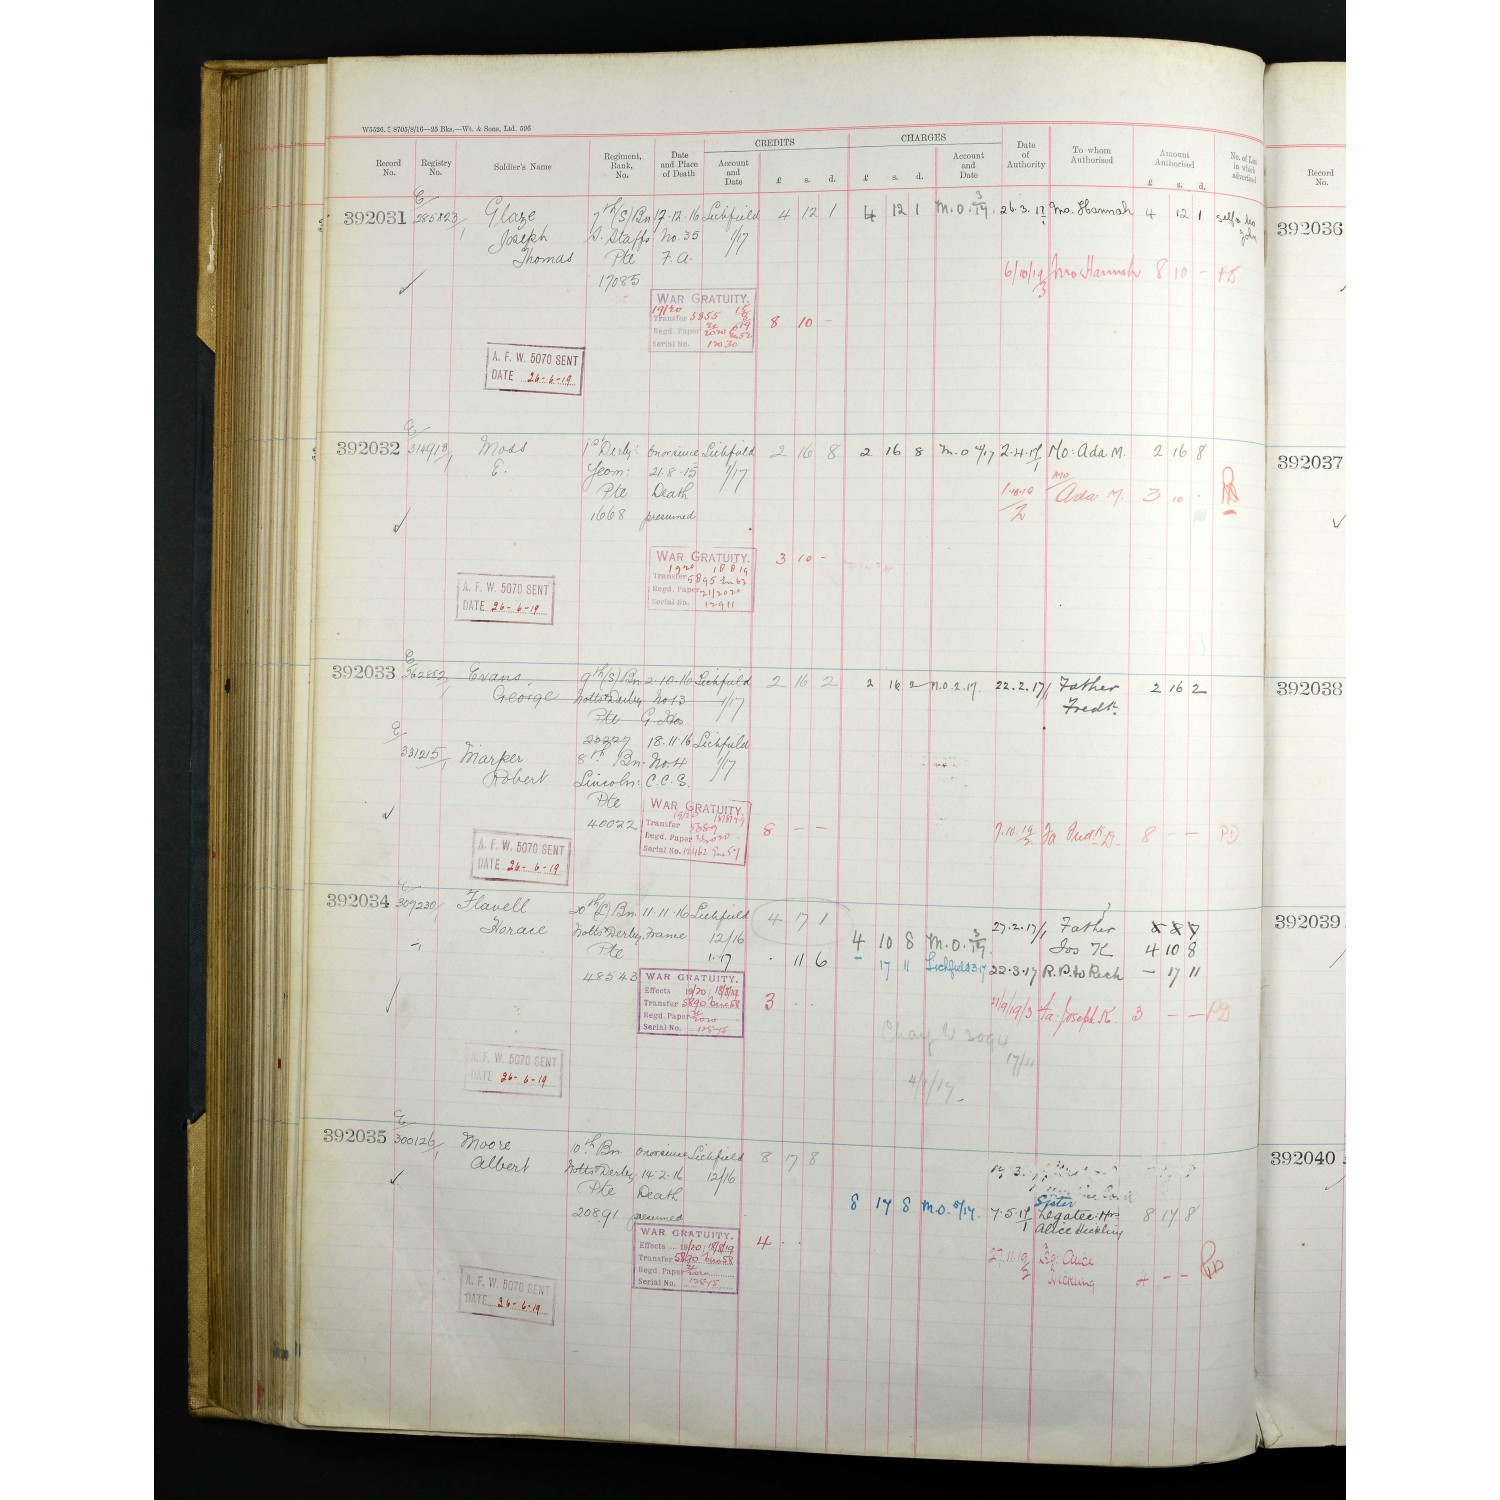 W5526. 8705/8/16—25 Bks.—Wt. & Sons, Ltd. 596
Record No. Registry No. Soldier's Name Regiment, Rank, No. Date and Place of Death CREDITS Account and Date £ s. d. CHARGES £ s. d. Account and Date Date of Authority To whom Authorised Amount Authorised £ s. d. No. of List in which advertised Record No.
392031 E/ 285823/1 Glaze 7th (S) Bn 17.12.16 Lichfield 4 12 1 4 12 1 M.O. 3/17. 26.3.17/1 Mo. Hannah 4 12 1 self & bro John 392036
Joseph S. Staffs No. 35 1/17
Thomas Pte F.A. 6/10/19/3 Mo Hannah 8 10 –
17085
WAR GRATUITY.
19/20
Transfer 5855
Regd. Paper
Serial No. 12030
8 10 –
A. F. W. 5070 SENT
DATE 26-6-19
392032 E/ 314918/1 Moss 1st Derby: on or since Lichfield 2 16 8 2 16 8 M.O 4/17 2.4.17/1 Mo: Ada M. 2 16 8 392037
E. Yeom: 21.8.15 1/17
Pte Death 1.10.19/2 Mo Ada M. 3 10 .
1668 presumed
WAR GRATUITY.
1920 18 8 19
Transfer 5895
Regd. Paper 21/2020
Serial No. 12911
3 10 –
A. F. W. 5070 SENT
DATE 26-6-19
392033 E/ 262852/1 Evans, 9th (S) Bn 2.10.16 Lichfield 2 16 2 2 16 2 M.O. 2.17. 22.2.17/1 Father 2 16 2 392038
George Notts & Derby No 13 1/17 Fredk.
Pte G. Hos
23327 18.11.16 Lichfield
E/ 331215/1 Marper 8th Bn. No. 4 1/17
Robert Lincoln: C.C.S.
Pte
40022
WAR GRATUITY.
Transfer 5889
Regd. Paper
Serial No. 12462
8 – – 7.10.19/2 Fa Fredk D. 8 – –
A. F. W. 5070 SENT
DATE 26-6-19
392034 E/ 307230/1 Flavell 20th (L) Bn 11.11.16 Lichfield 4 7 1 27.2.17/1 Father 392039
Horace Notts & Derby France 12/16 4 10 8 M.O. 3/17. Jos K 4 10 8
Pte 1.17 . 11 6 17 11 Lichfield 3.17 22.3.17 R.P. to Rech – 17 11
48543
WAR GRATUITY.
Effects 19/20 18/8/19
Transfer 5890
Regd. Paper
Serial No.
3 . . 27/9/19/3 Fa: Joseph K. 3 – –
17/11
4/1/17.
A. F. W. 5070 SENT
DATE 26-6-19
392035 E/ 300126/1 Moore 10th Bn on or since Lichfield 8 17 8 392040
Albert Notts & Derby 14.2.16 12/16
Pte Death Sister
20891 presumed 8 17 8 M.O. 5/17. 7.5.17/1 Legatee: Mrs 8 17 8
Alice Hickling
WAR GRATUITY.
Effects 19/20 18/8/19
Transfer 5890
Regd. Paper
Serial No.
4 . . 27.11.19/2 Alice Hickling 4 – –
A. F. W. 5070 SENT
DATE 26-6-19